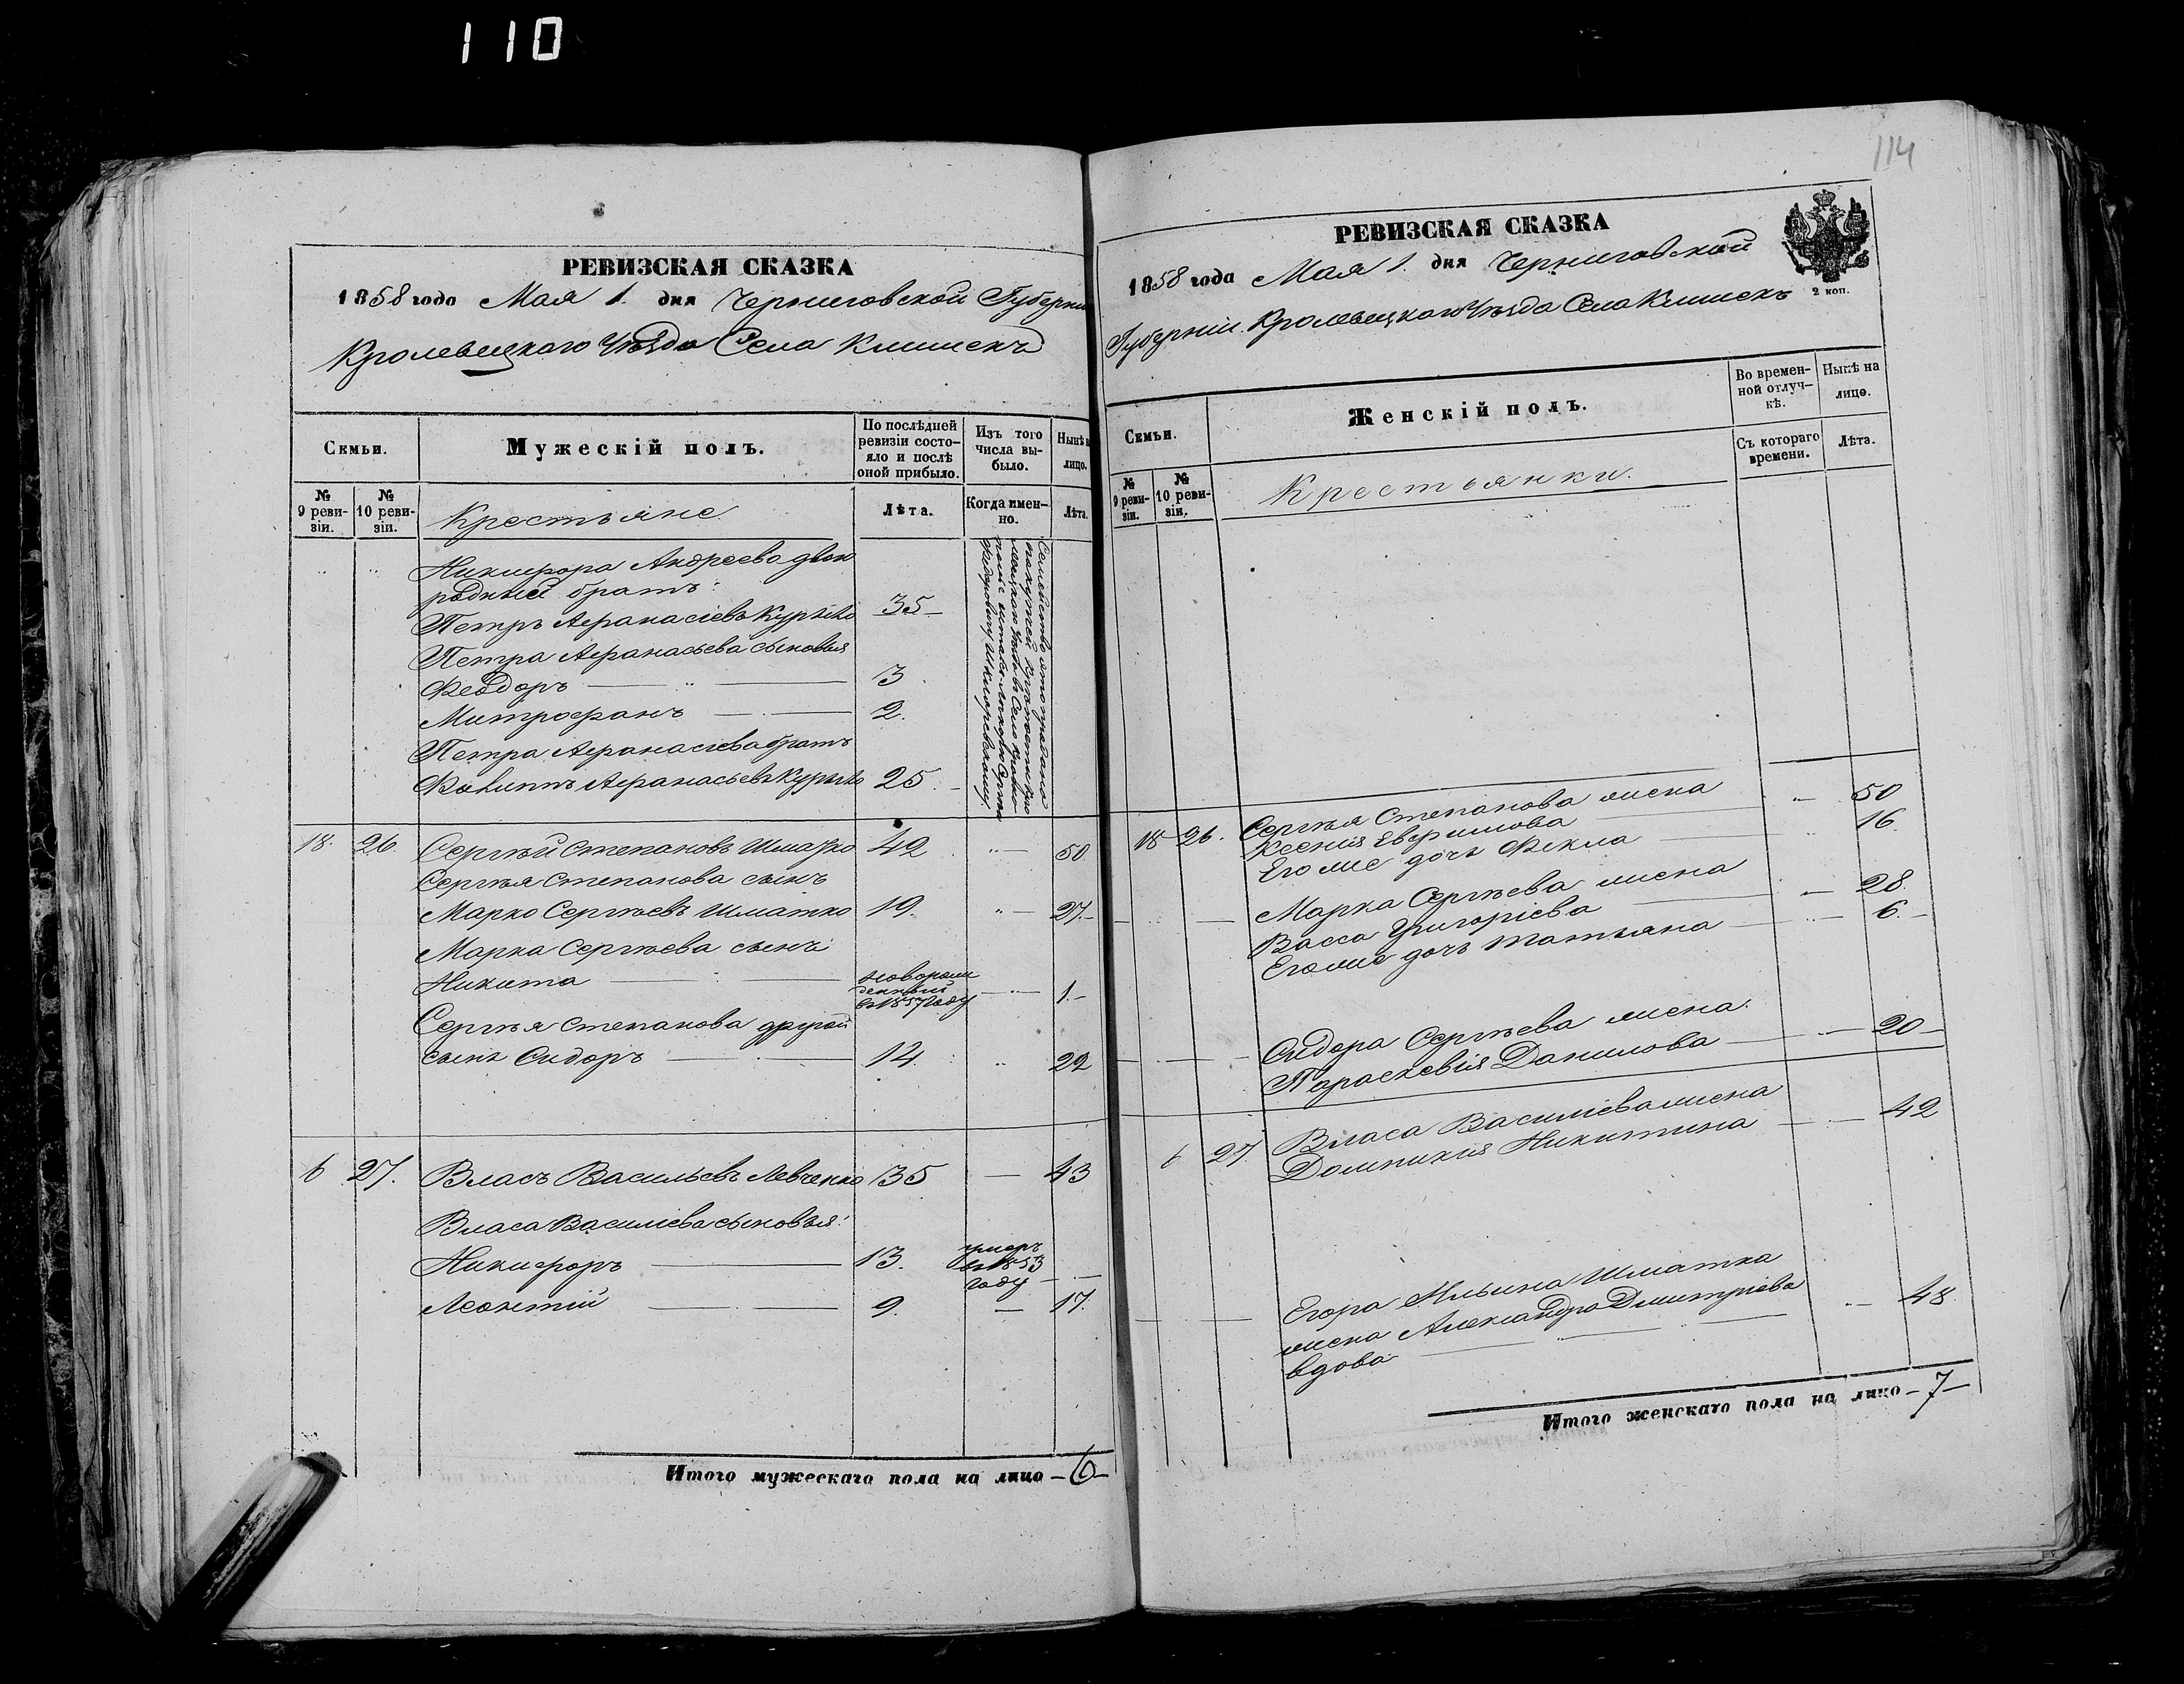 110
РЕВИЗСКАЯ СКАЗКА
1858 года Мая 1. дня Черниговской Губерніи
Кролевецкаго Уѣзда Села Клишекъ
Семьи.
Мужескій полъ.
По послѣдней ревизіи состо-
яло и послѣ
оной прибыло.
Изъ того
числа вы-
было.
Нынѣ на
лицо.
№
9 реви-
зіи.
№
10 реви-
зіи.
Крестьяне.
Лѣта.
Когда имен-
но.
Лѣта.
Никифора Андреева двою
родный братъ:
Петръ Афанасіевъ 35
Петра Афанасьева сыновья
Феодоръ 3
Митрофанъ 2.
Петра Афанасіева братъ
Филиппъ Афанасьевъ 25.
18. 26. Сергѣй Степановъ Шматко 42 50
Сергѣя Степанова сынъ
Марко Сергѣевъ Шматко 19. 27.
Марка Сергѣева сынъ
Никита новорож
денный
въ 1857 году 1.
Сергѣя Степанова другой
сынъ Сидоръ 14. 22
6 27. Власъ Васильевъ Левченко 35 43
Власа Василіева сыновья:
Никифоръ 13. умеръ
въ 1853
году
Леонтій 9. 17.
Итого мужескаго пола на лицо 6
114
РЕВИЗСКАЯ СКАЗКА
2 коп.
1858 года Мая 1. дня Черниговской
Губерніи Кролевецкаго Уѣзда Села Клишекъ
Семьи.
Женскій полъ.
Во времен-
ной отлуч-
кѣ.
Нынѣ на
лицо.
Съ котораго
времени.
Лѣта.
№
9 реви-
зіи.
№
10 реви-
зіи.
Крестьянки.
18 26. Сергѣя Степанова жена
Ксенія Ефимова 50
Его же дочь Фекла 16.
Марка Сергѣева жена
Васса Григоріева 28.
Его же дочь Татьяна 6.
Сидора Сергѣева жена.
Параскевія Данилова 20
6 27. Власа Василіева жена
Домникія Никитина 42
Егора Ильина Шматка
жена Александра Дмитріева
вдова 48
Итого женскаго пола на лицо 7